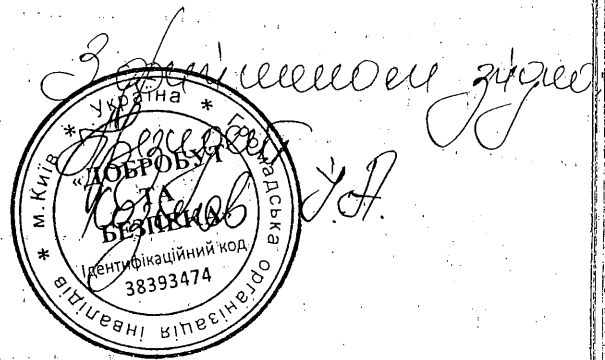 З оригіналом згідно
Президент
У.А.
* Україна * Громадська організація інвалідів * м.Київ
«ДОБРОБУТ
ТА
БЕЗПЕКА»
Ідентифікаційний код
38393474